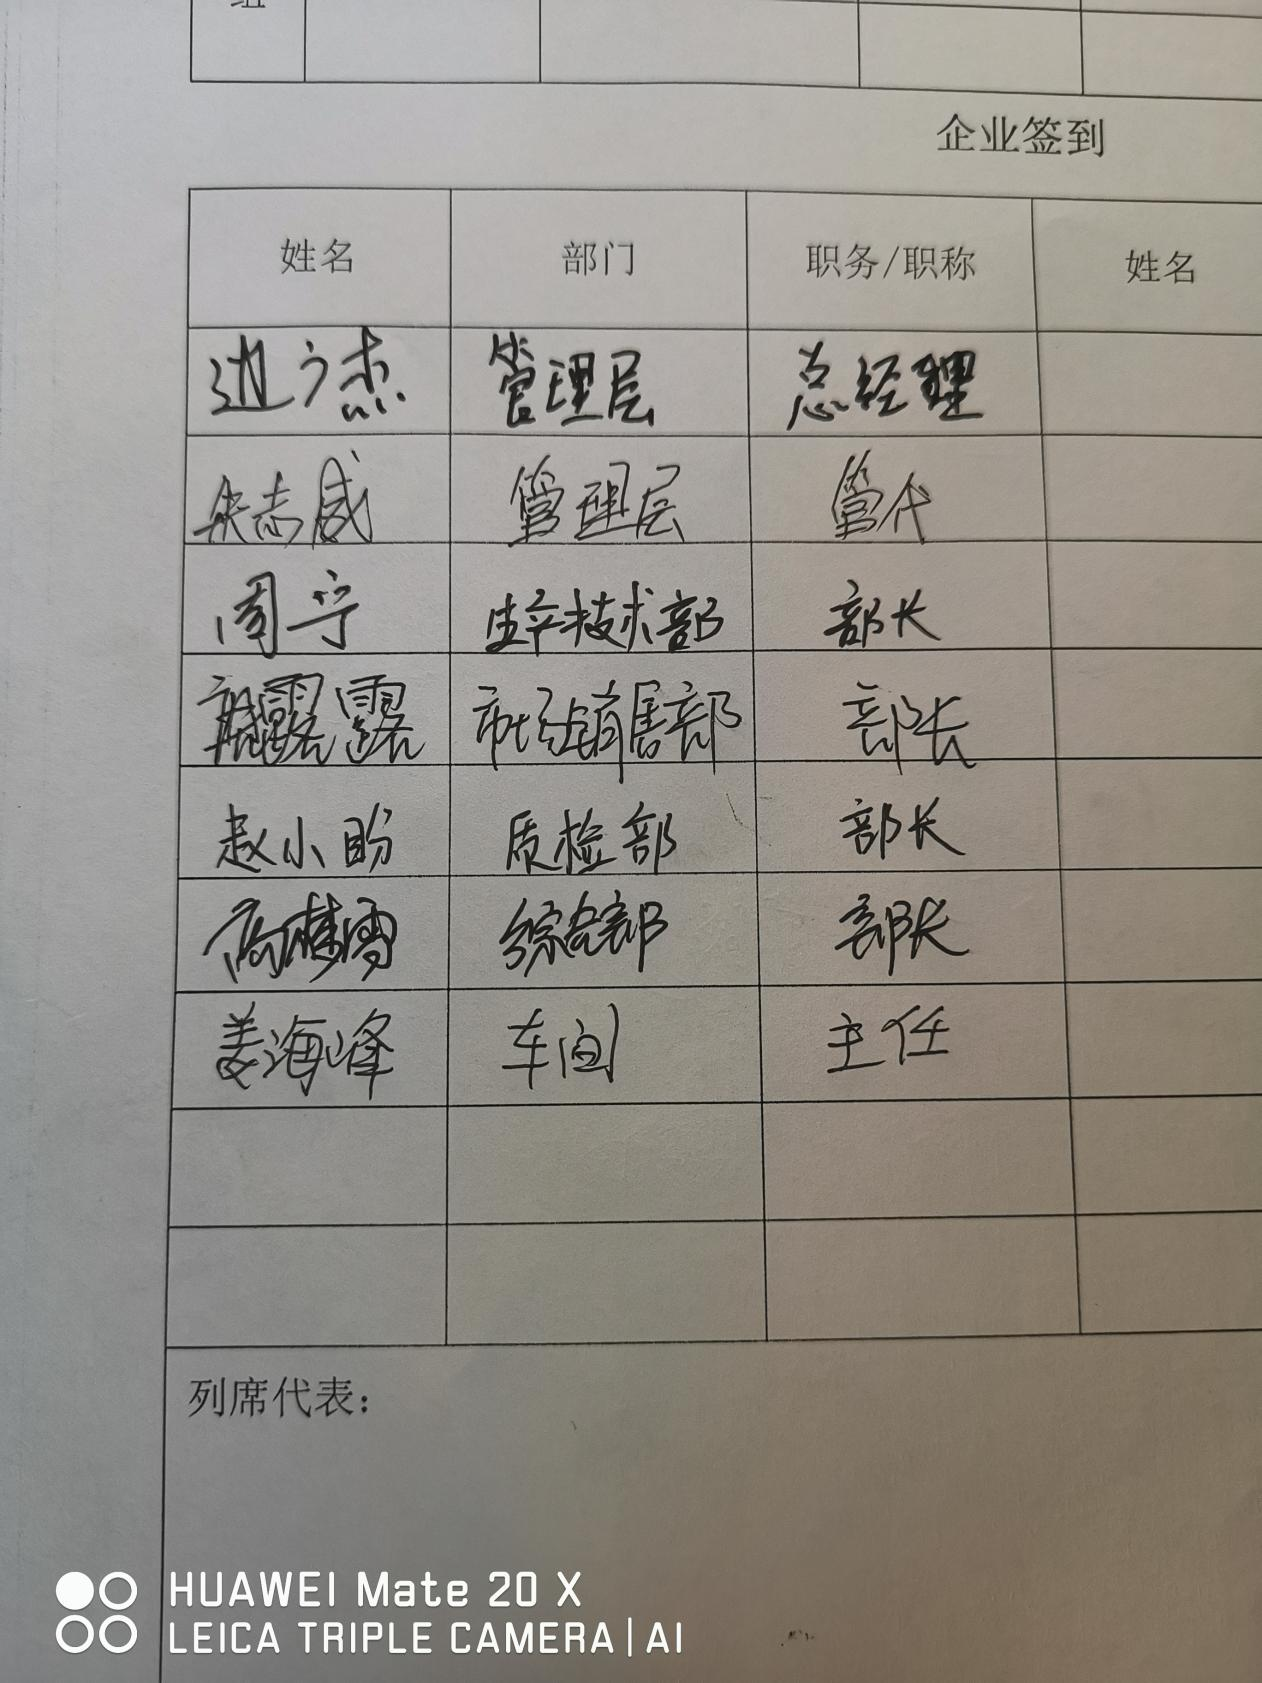 组
企业签到
姓名 部门 职务/职称 姓名
边广杰 管理层 总经理
志威 管理层 管代
周宁 生产技术部 部长
露露 市场销售部 部长
赵小盼 质检部 部长
高梦雪 综合部 部长
姜海峰 车间 主任
列席代表：
HUAWEI Mate 20 X
LEICA TRIPLE CAMERA | AI